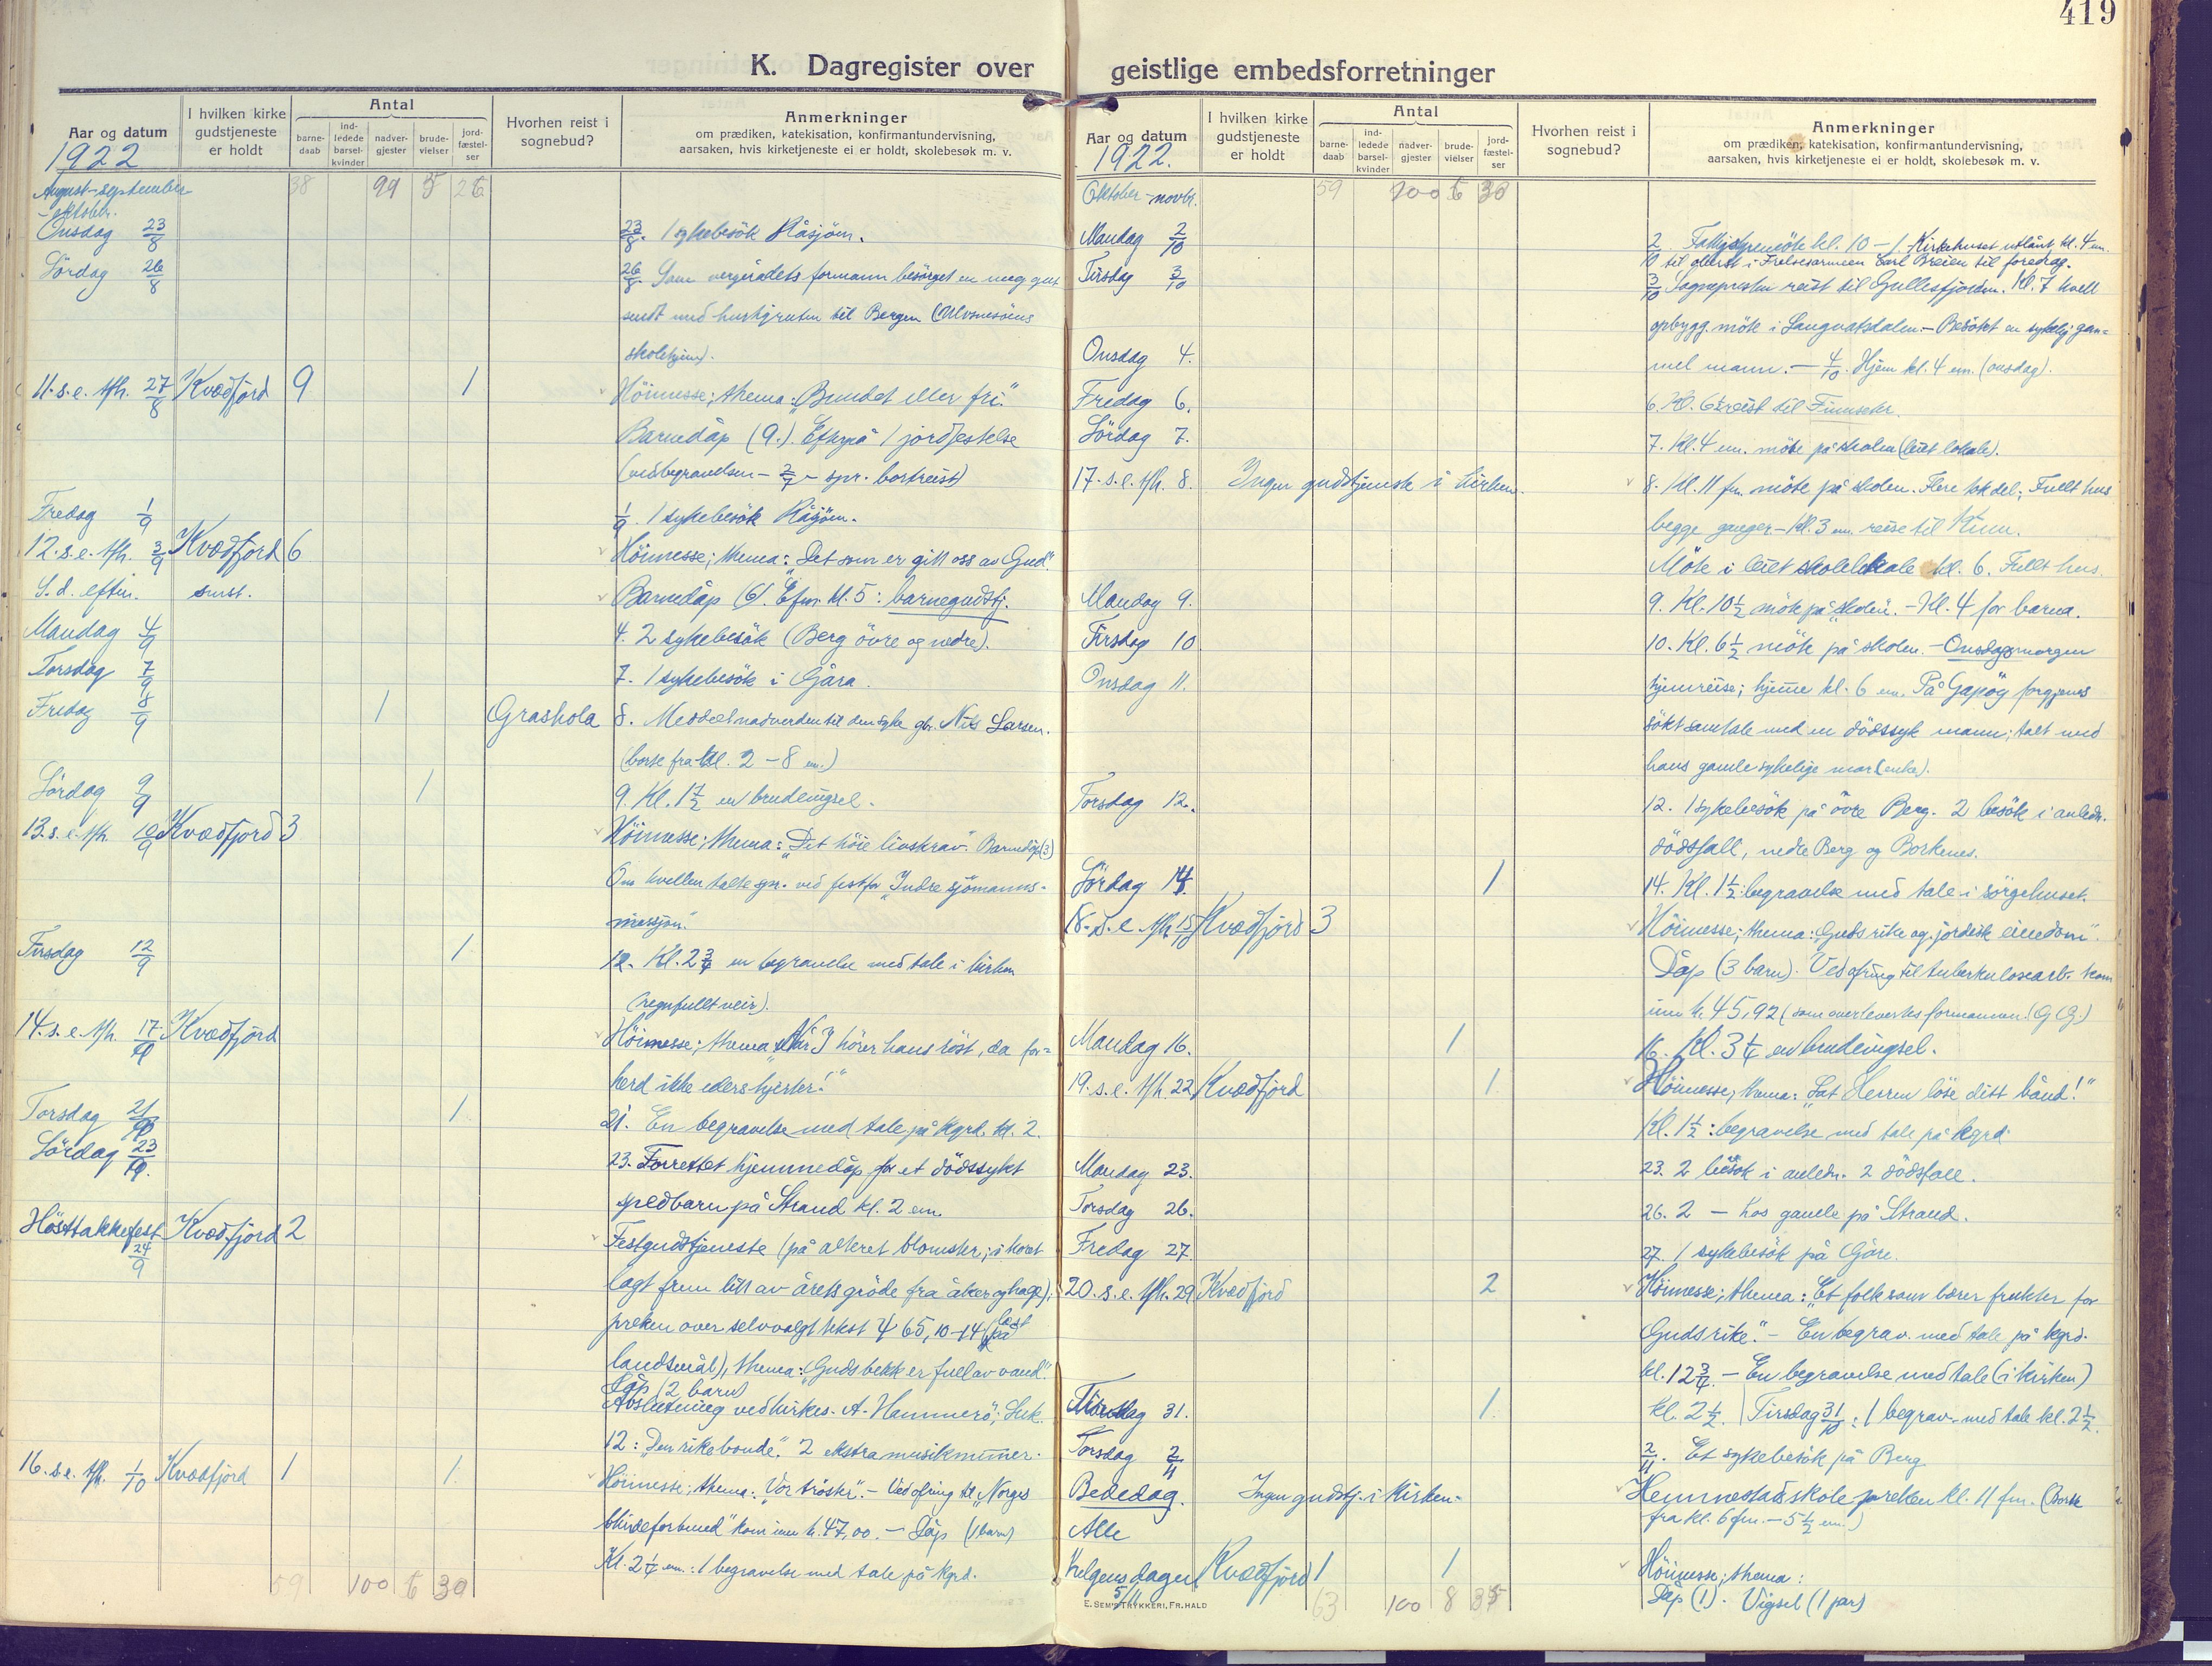 419
K. Dagregister over
Aar og datum
1922
I hvilken kirke
gudstjeneste
er holdt
Antal
barne-
daab
ind-
ledede
barsel-
kvinder
nadver-
gjester
brude-
vielser
jord-
fæstel-
ser
Hvorhen reist i
sognebud?
Anmerkninger
om prædiken, katekisation, konfirmantundervisning,
aarsaken, hvis kirketjeneste ei er holdt, skolebesøk m. v.
August-september 38 99 5 26
-oktober.
Onsdag 23/8 23/8. 1 sykebesök Råsjöen.
Lördag 26/8 26/8. Som vergerådets formann besörget en ung gut
sendt med hurtigruten til Bergen (Ulvsnesöens
skolehjem).
11. s. e. tfh. 27/8 Kvæfjord 9 1 Höimesse; thema: "Bundet eller fri."
Barnedåp (9.). Efterpå 1 jordfestelse
(ved begravelsen - spr. bortreist)
Fredag 1/9 1/9. 1 sykebesök Råsjöen.
12. s. e. tfh. 3/9 Kvæfjord 6 Höimesse; thema: "Det som er gitt oss av Gud".
S. d. eftm. smst. Barnedåp (6). Efm. kl. 5: barnegudstj.
Mandag 4/9 4. 2 sykebesök (Berg övre og nedre).
Torsdag 7/9 7. 1 sykebesök i Gåra.
Fredag 8/9 1 Grashola 8. Meddelt nadverden til den syke gbr. Nils Larsen.
(borte fra kl. 2 - 8 em.)
Lördag 9/9 1 9. Kl. 1 1/2 en brudevigsel.
13. s. e. tfh. 10/9 Kvæfjord 3 Höimesse; thema: "Det höie livskrav". Barnedåp (3)
Om kvellen talte spr. ved fest for "Indre sjömanns-
misjon."
Tirsdag 12/9 1 12. Kl. 2 3/4 en begravelse med tale i kirken
(regnfullt veir).
14. s. e. tfh. 17/9 Kvæfjord Höimesse; thema "Når I hörer hans röst, da for-
herd ikke eders hjerter!"
Torsdag 21/9 1 21. En begravelse med tale på kgrd. kl. 2.
Lördag 23/9. 23. Forrettet hjemmedåp for et dödssykt
spedbarn på Strand kl. 2 em.
Hösttakkefest 24/9 Kvæfjord 2 Festgudstjeneste (på alteret blomster; i koret
lagt frem litt av årets gröde fra åker og hage);
preken over selvvalgt tekst ψ 65, 10-14 (læst på
landsmål), thema: "Guds bekk er full av vand."
Dåp (2 barn)
Avslutning ved kirkes. A. Hammerö; Luk.
12: "Den rike bonde". 2 ekstra musiknummer.
16. s. e. tfh. 1/10 Kvæfjord 1 1 Höimesse; thema: "Vor tröster". - Ved ofring til "Norges
blindeforbund" kom inn kr. 47,00. - Dåp (1 barn)
Kl. 2 1/4 em.: 1 begravelse med tale på kgrd.
59 100 6 30
geistlige embedsforretninger
Aar og datum
1922.
I hvilken kirke
gudstjeneste
er holdt
Antal
barne-
daab
ind-
ledede
barsel-
kvinder
nadver-
gjester
brude-
vielser
jord-
fæstel-
ser
Hvorhen reist i
sognebud?
Anmerkninger
om prædiken, katekisation, konfirmantundervisning,
aarsaken, hvis kirketjeneste ei er holdt, skolebesøk m. v.
Oktober - novbr. 59 100 6 30
Mandag 2/10 2/10. Fattigstyremöte kl. 10 - 1. Kirkehuset utlånt kl. 4 em.
til oberst i Frelsesarmeen Carl Breien til foredrag.
Tirsdag 3/10 3/10. Sognepresten reist til Gullesfjorden. Kl. 7 kvell
opbygg. möte i Langvatsdalen. - Besökt en sykelig gam-
Onsdag 4. mel mann. - 4/10. Hjem kl. 4 em. (onsdag).
Fredag 6. 6. Kl. 6 1/2 reist til Finnseter.
Lördag 7. 7. Kl. 4 em. möte på skolen (leiet lokale).
17. s. e. tfh. 8. Ingen gudstjeneste i kirken. 8. Kl. 11 fm. möte på skolen. Flere tok del; Fullt hus
begge ganger - Kl. 3 em. reise til Kinn.
Möte i leiet skolelokale kl. 6. Fullt hus.
Mandag 9. 9. Kl. 10 1/2 möte på skolen. - Kl. 4 for barna.
Tirsdag 10 10. Kl. 6 1/2 möte på skolen. - Onsdag morgen
Onsdag 11. hjemreise; hjemme kl. 6 em. På Gapöy forgjeves
sökt samtale med en dödssyk mann; talt med
hans gamle sykelige mor (enke).
Torsdag 12. 12. 1 sykebesök på övre Berg. 2 besök i anledn.
dödsfall, nedre Berg og Borkenes.
Lördag 14. 1 14. Kl. 1 1/2: begravelse med tale i sörgehuset.
18. s. e. tfh. 15/10 Kvæfjord 3 Höimesse; thema: "Guds rike og jordisk eiendom".
Dåp (3 barn). Ved ofring til tuberkulosearb. kom
inn kr. 45,92 (som overlevertes formannen.
Mandag 16. 1 16. Kl. 3 1/4 en brudevigsel.
19. s. e. tfh. 22. Kvæfjord 1 Höimesse; thema: "Lat Herren löse ditt bånd!"
Kl. 1 1/2: begravelse med tale på kgrd.
Mandag 23. 23. 2 besök i anledn. 2 dödsfall.
Torsdag 26. 26. 2 - hos gamle på Strand.
Fredag 27. 27. 1 sykebesök på Gåre.
20. s. e. tfh. 29 Kvæfjord 2 Höimesse; thema: "Et folk som bærer frukter for
Guds rike." - En begrav. med tale på kgrd.
kl. 12 3/4. - En begravelse med tale (i kirken)
Tirsdag 31. 1 kl. 2 1/2. Tirsdag 31/10: 1 begrav. med tale kl. 2 1/2.
Torsdag 2/11 2/11. Et sykebesök på Berg
Bededag. Ingen gudstj. i kirken. Hemmestad skole preken kl. 11 fm. (Borte
fra kl. 6 fm. - 5 1/2 em.)
Alle
Helgens dagen 5/11 Kvæfjord 1 1 Höimesse; thema:
Dåp (1). Vigsel (1 par)
E. SEM'S TRYKKERI, FR.HALD
63 100 8 35